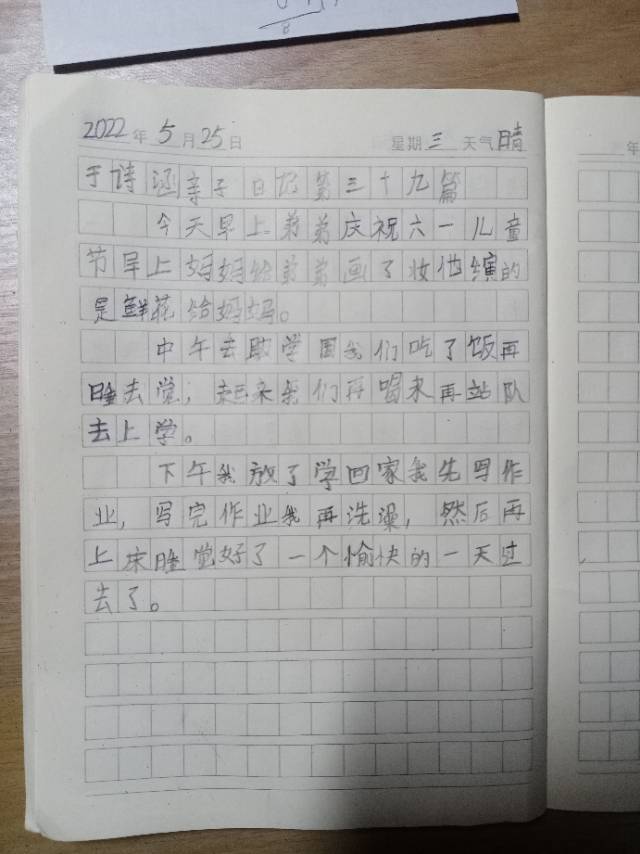 2022年 5月25日 星期三 天气晴
于诗涵亲子日记第三十九篇
今天早上弟弟庆祝六一儿童
节早上妈妈给弟弟画了妆他演的
是鲜花给妈妈。
中午去助学园我们吃了饭再
睡去觉,起来我们再喝来再站队
去上学。
下午我放了学回家我先写作
业,写完作业我再洗澡,然后再
上床睡觉好了一个愉快的一天过
去了。
年